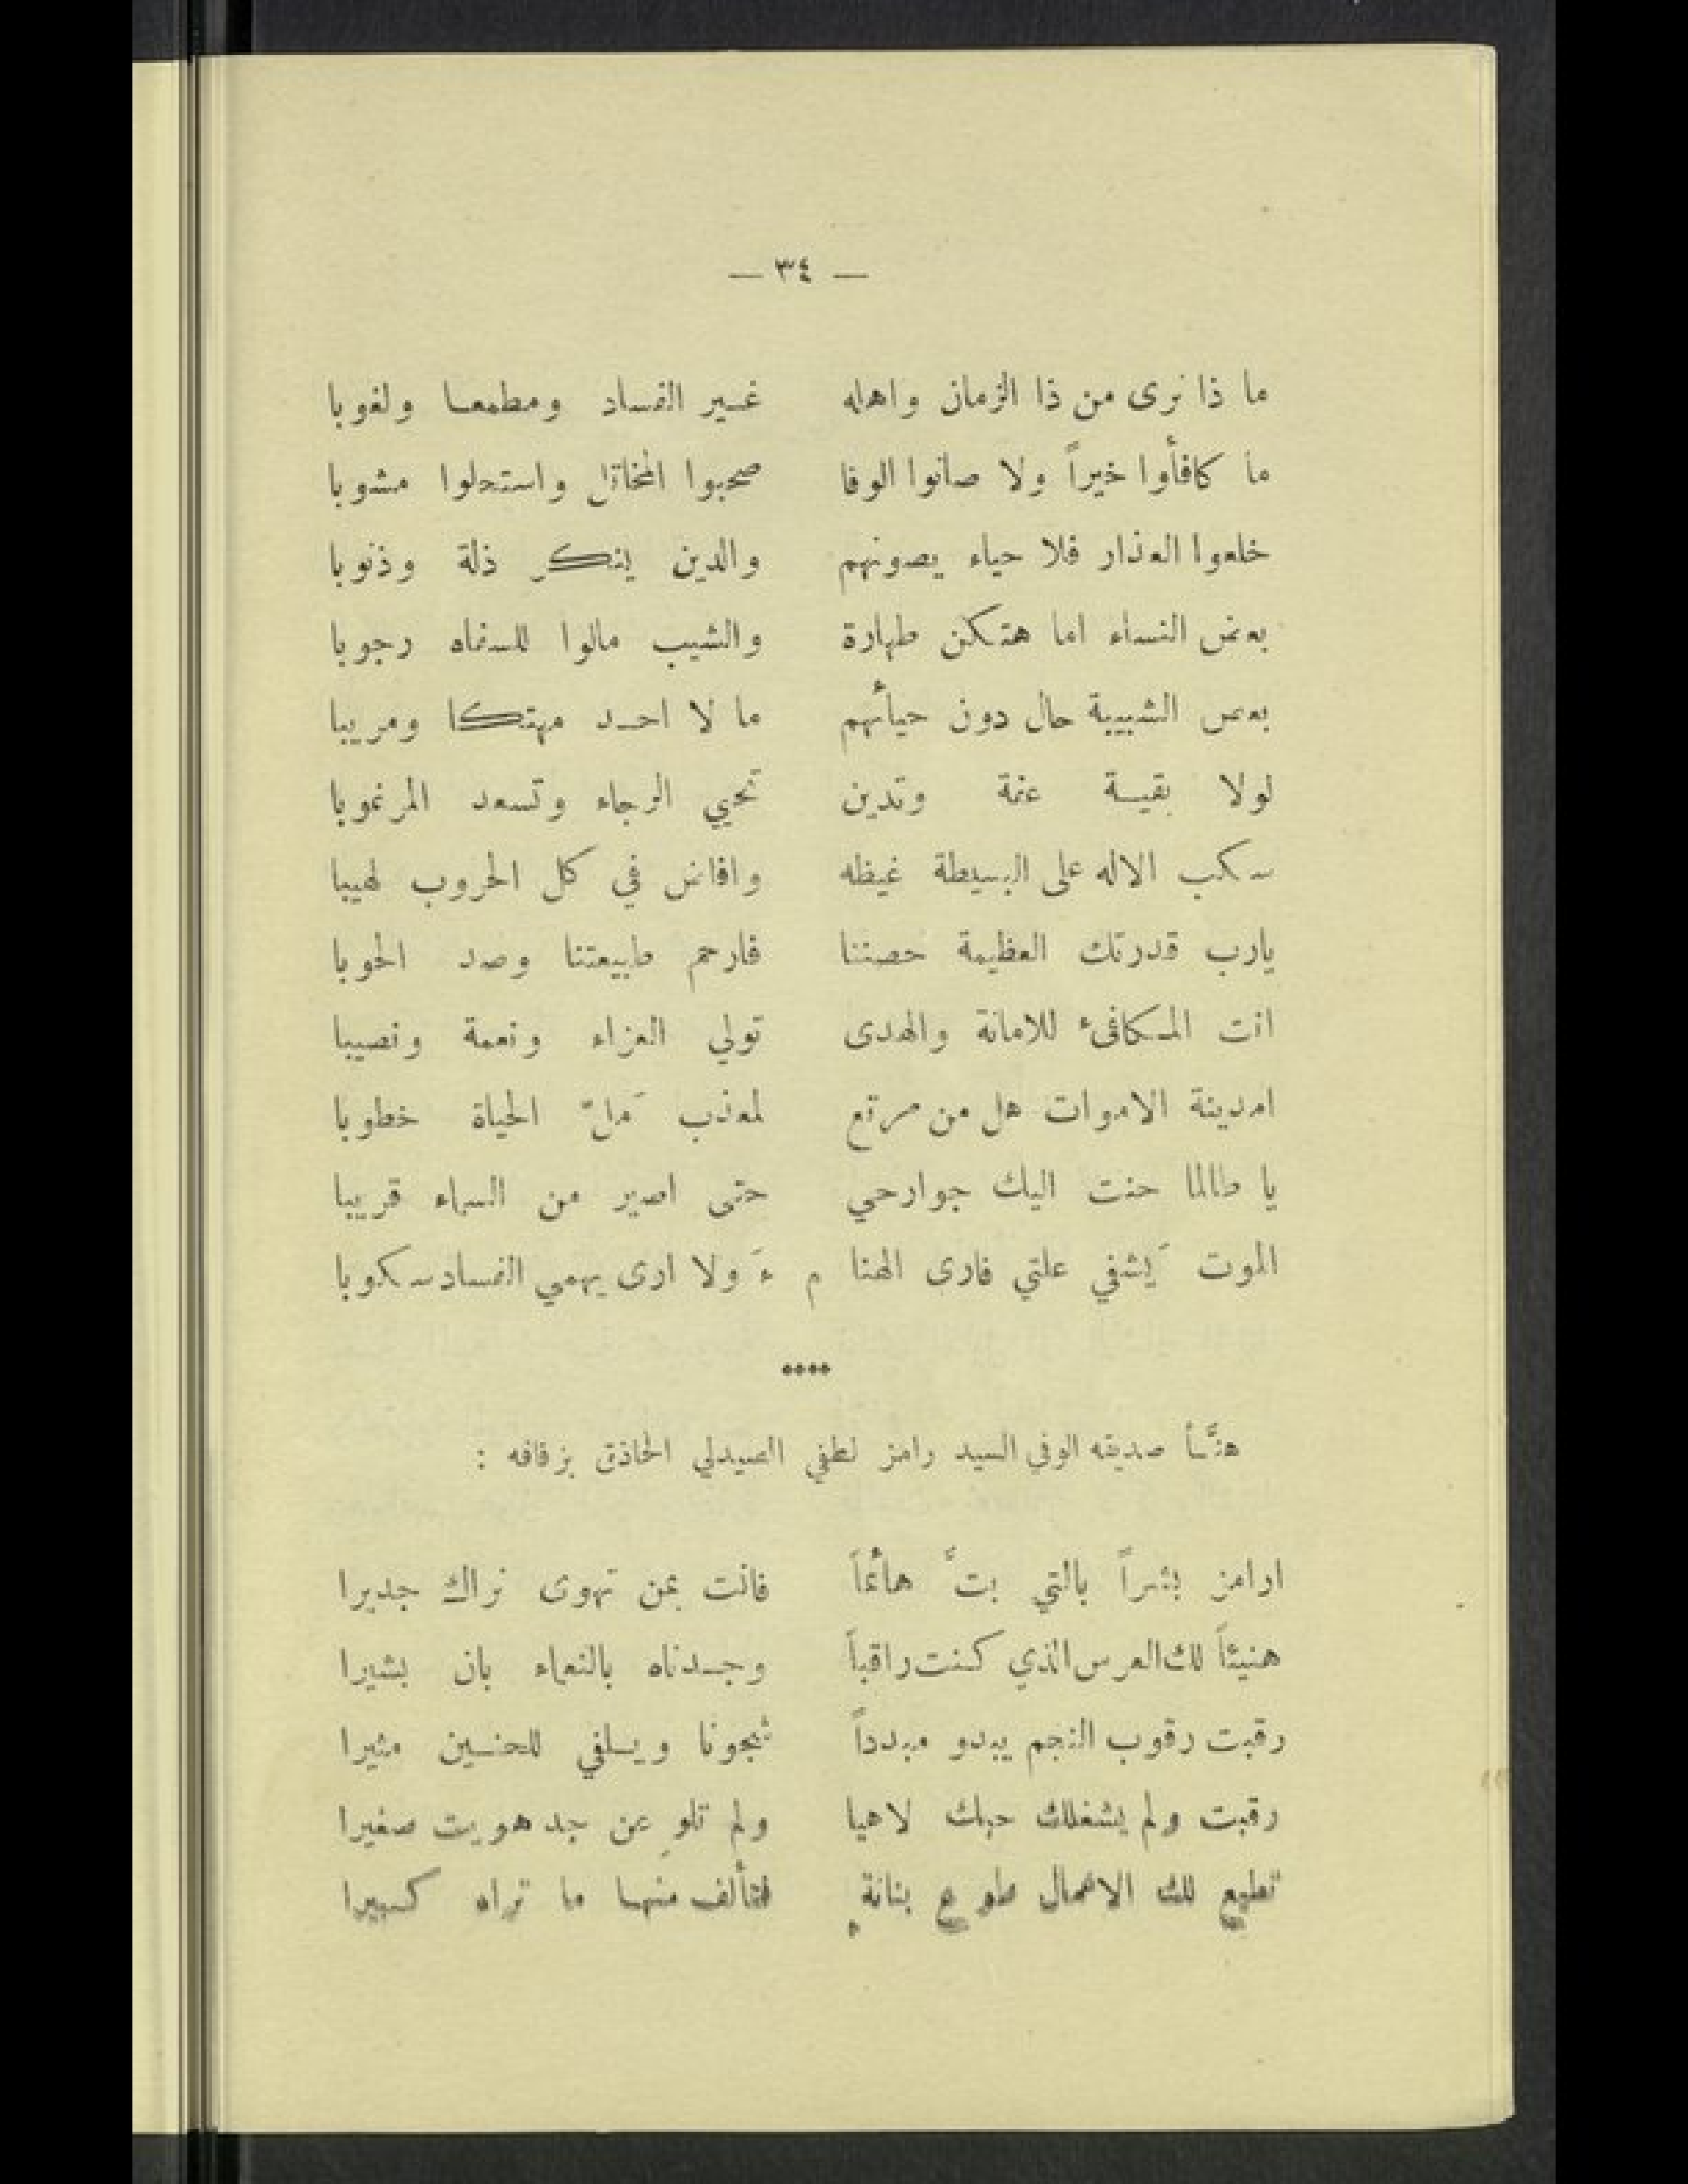 — ٣٤ —
ما ذا نرى من ذا الزمان واهله غير الفساد ومطمعا ولغوبا
ما كافأوا خيراً ولا صانوا الوفا صحبوا المخاتل واستحلوا مشوبا
خلعوا العذار فلا حياء يصونهم والدين ينكر ذلة وذنوبا
بعض النساء اما هتكن طهارة والشيب مالوا للسفاه رجوبا
بعض الشبيبة حال دون حيائهم ما لا احد مهتكا ومريبا
لولا بقية عفة وتدين تحيي الرجاء وتسعد المرغوبا
سكب الاله على البسيطة غيظه وافاض في كل الحروب لهيبا
يارب قدرتك العظيمة حصننا فارحم طبيعتنا وصد الحوبا
انت المكافىء للامانة والهدى تولي العزاء ونعمة ونصيبا
امدينة الاموات هل من مرتع لمعذب مَلّ الحياة خطوبا
يا طالما حنت اليك جوارحي حتى اصير من السماء قريبا
الموت يَشفي علتي فارى الهنا م ءَ ولا ارى يهمي الفساد سكوبا
****
هنَّأ صديقه الوفي السيد رامز لطفي الصيدلي الحاذق بزفافه :
ارامز بشراً بالتي بتَّ هائماً فانت بمن تهوى نراك جديرا
هنيئاً لك العرس الذي كنت راقباً وجدناه بالنعماء بان بشيرا
رقبت رقوب النجم يبدو مبدداً شجونا ويلفي للحنين مثيرا
رقبت ولم يشغلك حبك لاهيا ولم تلوِ عن جد هويت صغيرا
تطيع لك الاعمال طوع بنانة فتألف منها ما تراه كبيرا